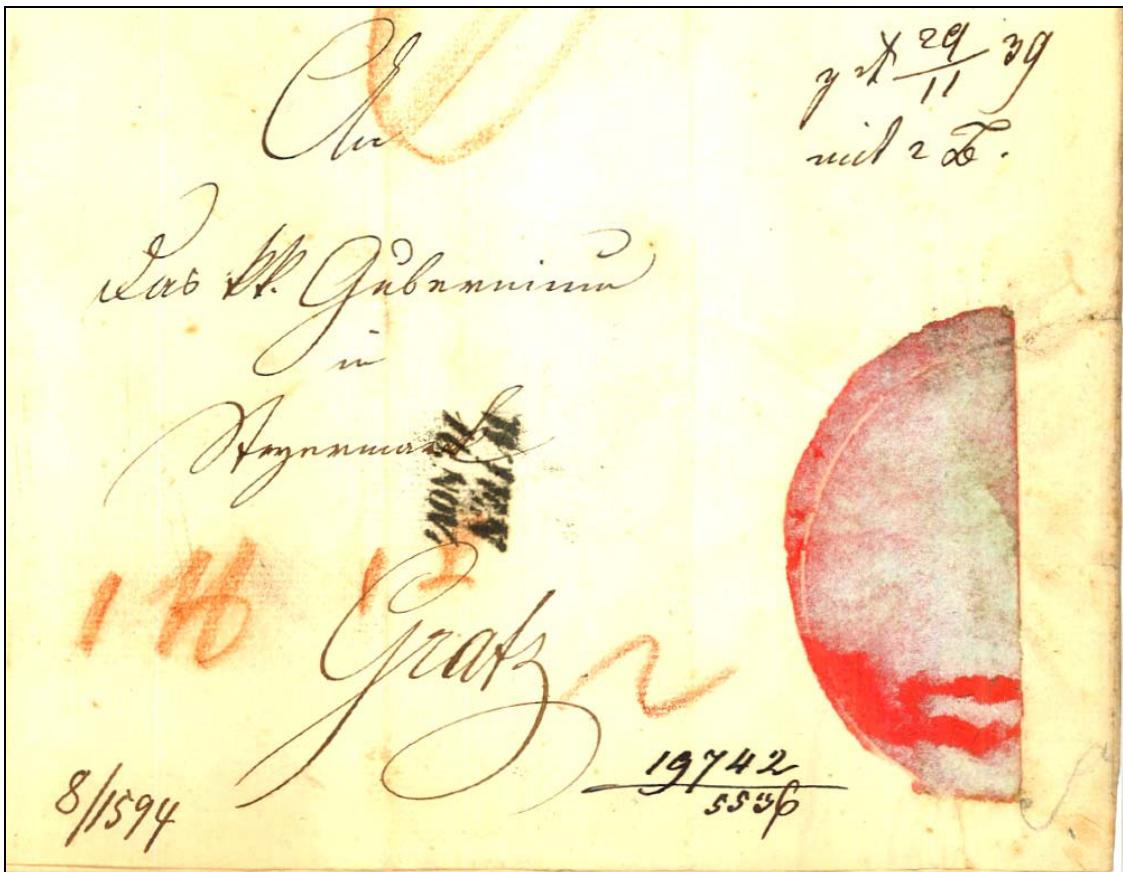 An
29/11 39
mit 2
Das kk. Gubernium
in
Steyermark
NOV.
Gratz
19742
5536
8/1594